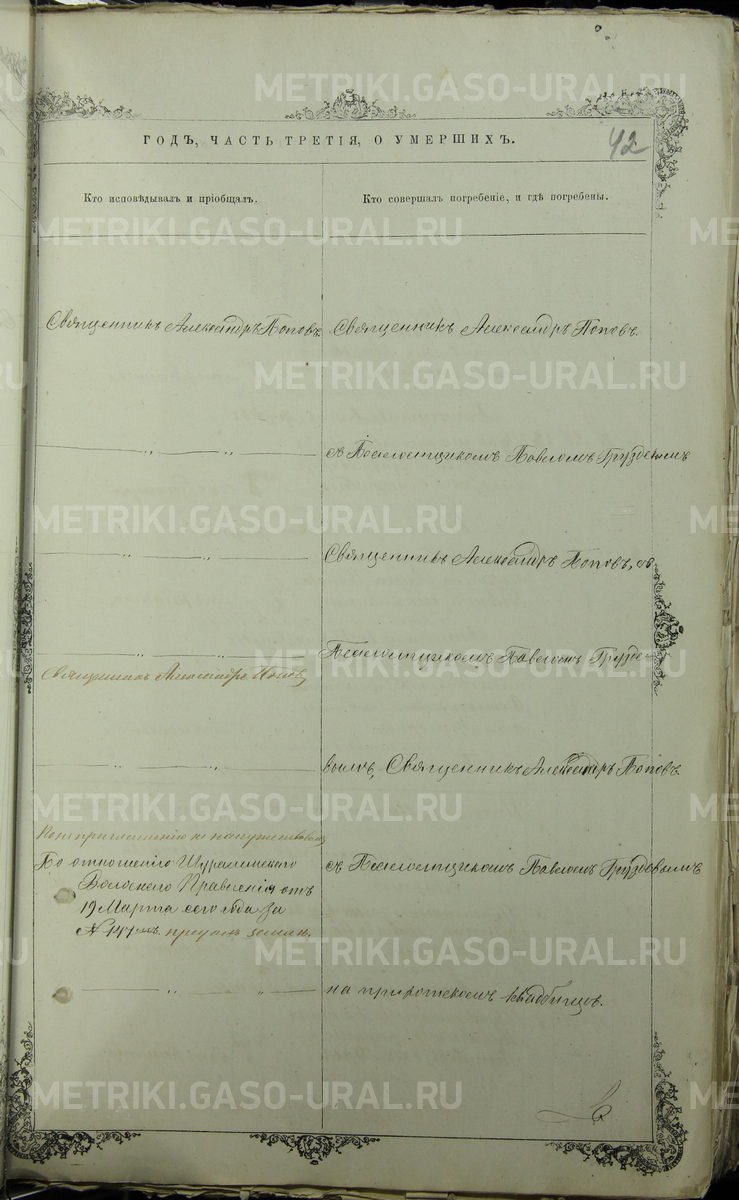 METRIKI.GASO-URAL.RU
ГОДЪ, ЧАСТЬ ТРЕТІЯ, О УМЕРШИХЪ.
42
Кто исповѣдывалъ и пріобщалъ.
Кто совершалъ погребеніе, и гдѣ погребены.
Священникъ Александръ Поповъ.
Священникъ Александръ Поповъ.
съ Псаломщикомъ Павломъ Груздевымъ
Священникъ Александръ Поповъ, съ
Псаломщикомъ Павломъ Грузде-
Священникъ Александръ Поповъ
вымъ, Священникъ Александръ Поповъ.
По отношенію
Волоснаго Правленія отъ
19 Марта сего года за
№ преданъ землѣ.
съ Псаломщикомъ Павломъ Груздевымъ
на приходскомъ кладбищѣ.